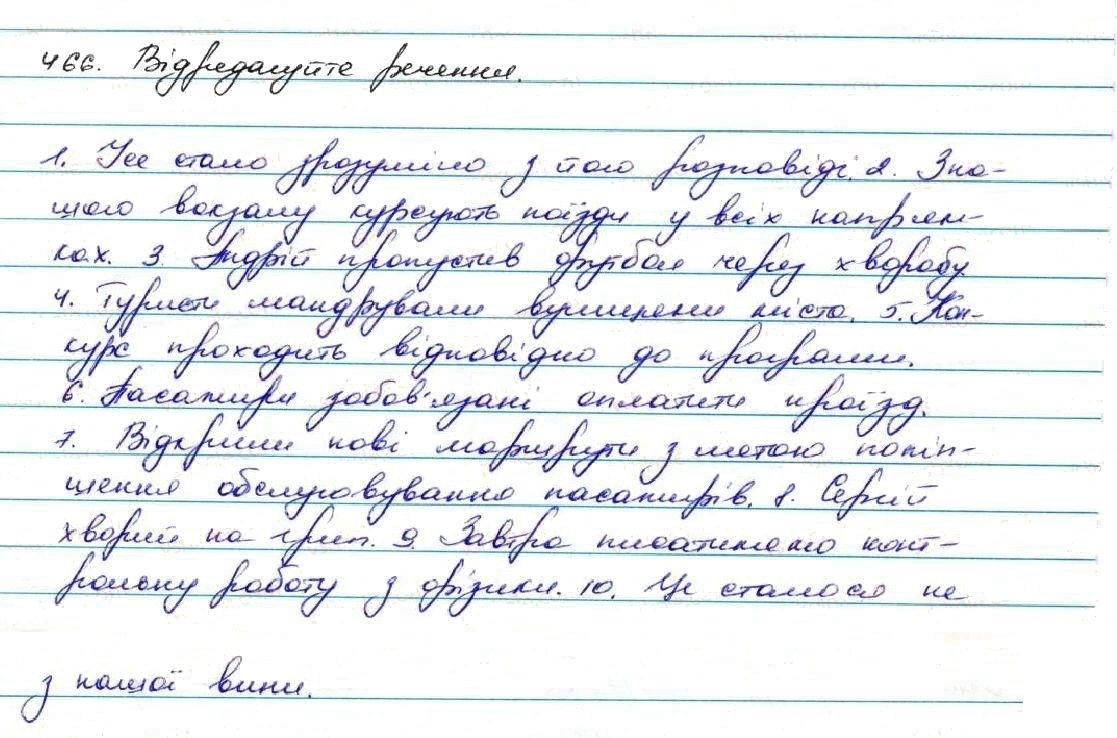 466. Відредагуйте речення.
1. Усе стало зрозуміло з його розповіді. 2. З на-
шого вокзалу курсують поїзди у всіх напрям-
ках. 3. Андрій пропустив футбол через хворобу
4. Туристи мандрували вулицями міста. 5. Кон-
курс проходить відповідно до програми.
6. Пасажири зобов'язані оплатити проїзд.
7. Відкрили нові маршрути з метою поліп-
шення обслуговування пасажирів. 8. Сергій
хворий на грип. 9. Завтра писатимемо конт-
рольну роботу з фізики. 10. Це сталося не
з нашої вини.